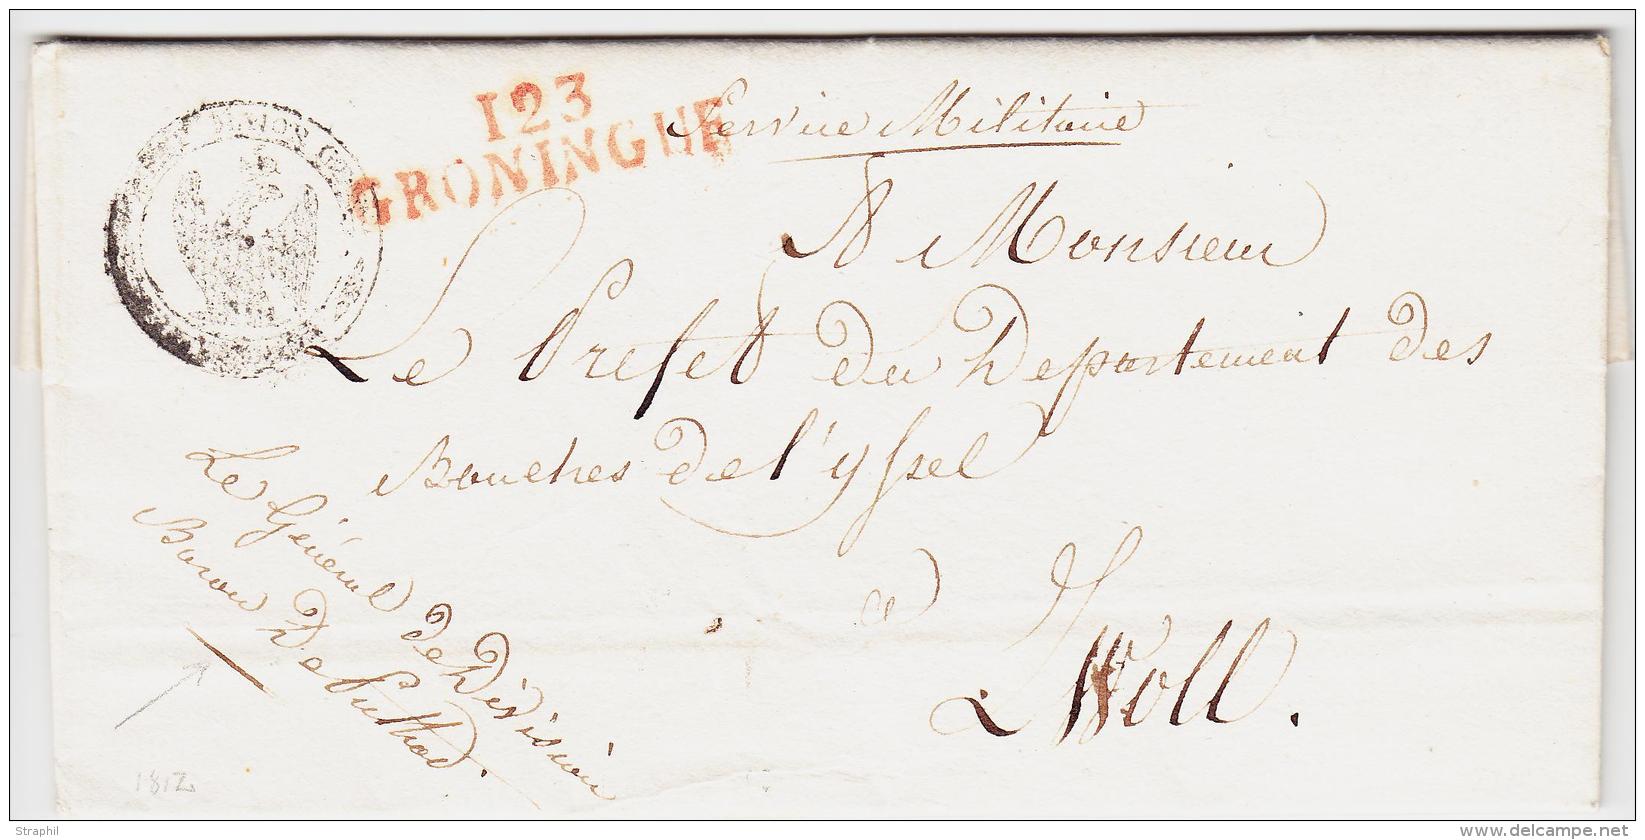 123
GRONINGUE
Service Militaire
A Monsieur
Le Prefet du Departement des
Bouches de l'yssel
a
Zwoll.
Le Général de Division
Baron De Puthod.
1812
Straphil
delcampe.net